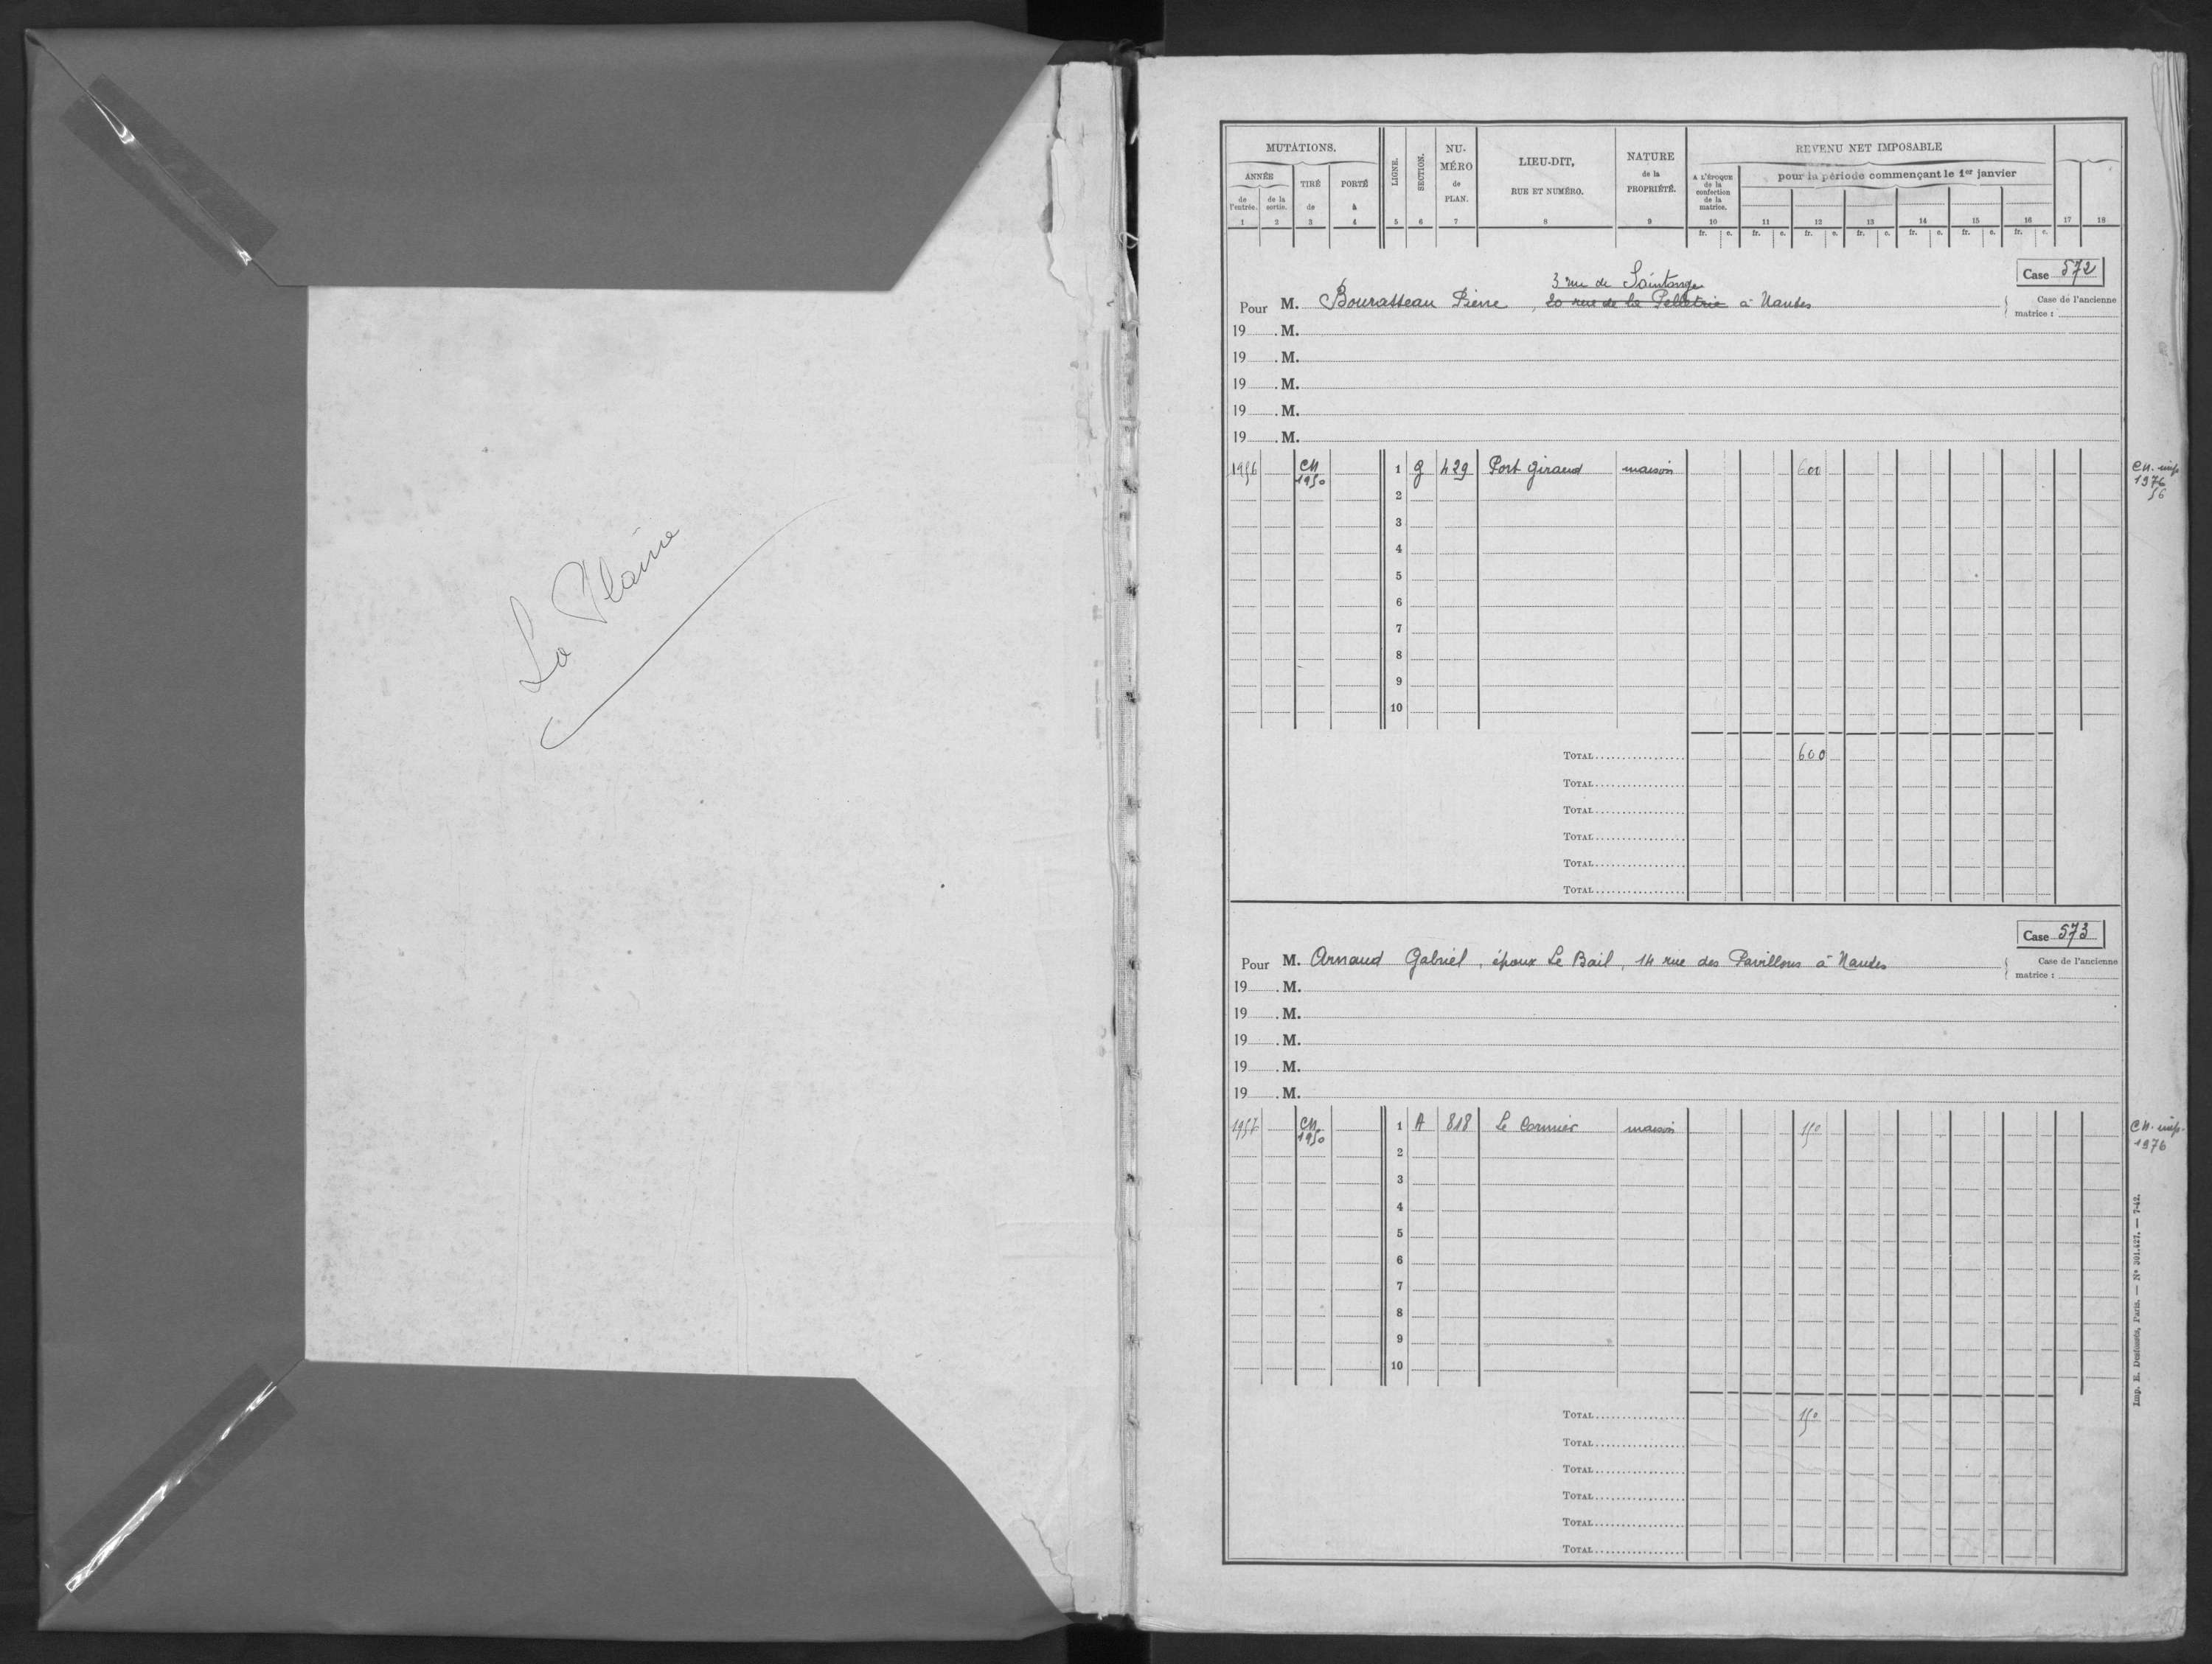 La Plaine
MUTATIONS.
ANNÉE
de l'entrée.
de la sortie.
TIRÉ de
PORTÉ à
LIGNE.
SECTION.
NUMÉRO de PLAN.
LIEU-DIT,
RUE ET NUMÉRO.
NATURE de la PROPRIÉTÉ.
REVENU NET IMPOSABLE
A L'ÉPOQUE de la confection de la matrice.
pour la période commençant le 1er janvier
1 2 3 4 5 6 7 8 9 10 11 12 13 14 15 16 17 18
fr. c. fr. c. fr. c. fr. c. fr. c. fr. c. fr. c.
Case 572
3 rue de Saintonge
Pour M. Bourasseau Pierre, 20 rue de la Pelletrie à Nantes
Case de l'ancienne matrice :
19 . M.
19 . M.
19 . M.
19 . M.
19 . M.
1956 CN 1950 1 G 429 Port Giraud maison 600
CN. imp 1976 56
2
3
4
5
6
7
8
9
10
TOTAL 600
TOTAL
TOTAL
TOTAL
TOTAL
TOTAL
Case 573
Pour M. Arnaud Gabriel, époux Le Bail, 14 rue des Pavillons à Nantes
Case de l'ancienne matrice :
19 . M.
19 . M.
19 . M.
19 . M.
19 . M.
CN. 1950 1 A 818 Le Cormier maison 150
CN. imp. 1976
2
3
4
5
6
7
8
9
10
TOTAL 150
TOTAL
TOTAL
TOTAL
TOTAL
TOTAL
Imp. E. Desfossés, Paris. — N° 301.427. — 7-42.